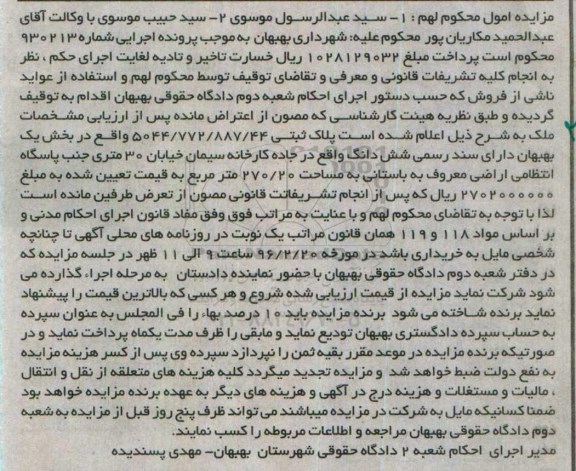 مزایده اموال محکوم لهم : ۱- سـید عبدالرسـول موسوی ۲- سید حبیب موسوی با وکالت آقای
عبدالحمید مکاریان پور محکوم علیه: شهرداری بهبهان به موجب پرونده اجرایی شماره ۹۳۰۲۱۳
محکوم است پرداخت مبلغ ۱۰۲۸۱۲۹۰۳۲ ریال خسارت تاخیر و تادیه لغایت اجرای حکم ، نظر
به انجام کلیه تشریفات قانونی و معرفی و تقاضای توقیف توسط محکوم لهم و استفاده از عواید
ناشی از فروش که حسب دستور اجرای احکام شعبه دوم دادگاه حقوقی بهبهان اقدام به توقیف
گردیده و طبق نظریه هیئت کارشناسی که مصون از اعتراض مانده پس از ارزیابی مشخصات
ملک به شرح ذیل اعلام شده است پلاک ثبتی ۵۰۴۴/۷۷۲/۸۸۷/۴۴ واقع در بخش یک
بهبهان دارای سند رسمی شش دانگ واقع در جاده کارخانه سیمان خیابان ۳۰ متری جنب پاسگاه
انتظامی اراضی معروف به باستانی به مساحت ۲۷۰/۲۰ متر مربع به قیمت تعیین شده به مبلغ
۲۷۰۲۰۰۰۰۰۰ ریال که پس از انجام تشریفاتت قانونی مصون از تعرض طرفین مانده است
لذا با توجه به تقاضای محکوم لهم و با عنایت به مراتب فوق وفق مفاد قانون اجرای احکام مدنی و
بر اساس مواد ۱۱۸ و ۱۱۹ همان قانون مراتب یک نوبت در روزنامه های محلی آگهی تا چنانچه
شخصی مایل به خریداری باشد در مورخه ۹۶/۲/۲۰ ساعت ۹ الی ۱۱ ظهر در جلسه مزایده که
در دفتر شعبه دوم دادگاه حقوقی بهبهان با حضور نماینده دادستان به مرحله اجراء گذارده می
شود شرکت نماید مزایده از قیمت ارزیابی شده شروع و هر کسی که بالاترین قیمت را پیشنهاد
نماید برنده شناخته می شود برنده مزایده باید ۱۰ درصد بهاء را فی المجلس به عنوان سپرده
به حساب سپرده دادگستری بهبهان تودیع نماید و مابقی را ظرف مدت یکماه پرداخت نماید و در
صورتیکه برنده مزایده در موعد مقرر بقیه ثمن را نپردازد سپرده وی پس از کسر هزینه مزایده
به نفع دولت ضبط خواهد شد و مزایده تجدید میگردد کلیه هزینه های متعلقه از نقل و انتقال
، مالیات و مستغلات و هزینه درج در آگهی و هزینه های دیگر به عهده برنده مزایده خواهد بود
ضمنا کسانیکه مایل به شرکت در مزایده میباشند می تواند ظرف پنج روز قبل از مزایده به شعبه
دوم دادگاه حقوقی بهبهان مراجعه و اطلاعات مربوطه را کسب نمایند.
مدیر اجرای احکام شعبه ۲ دادگاه حقوقی شهرستان بهبهان- مهدی پسندیده